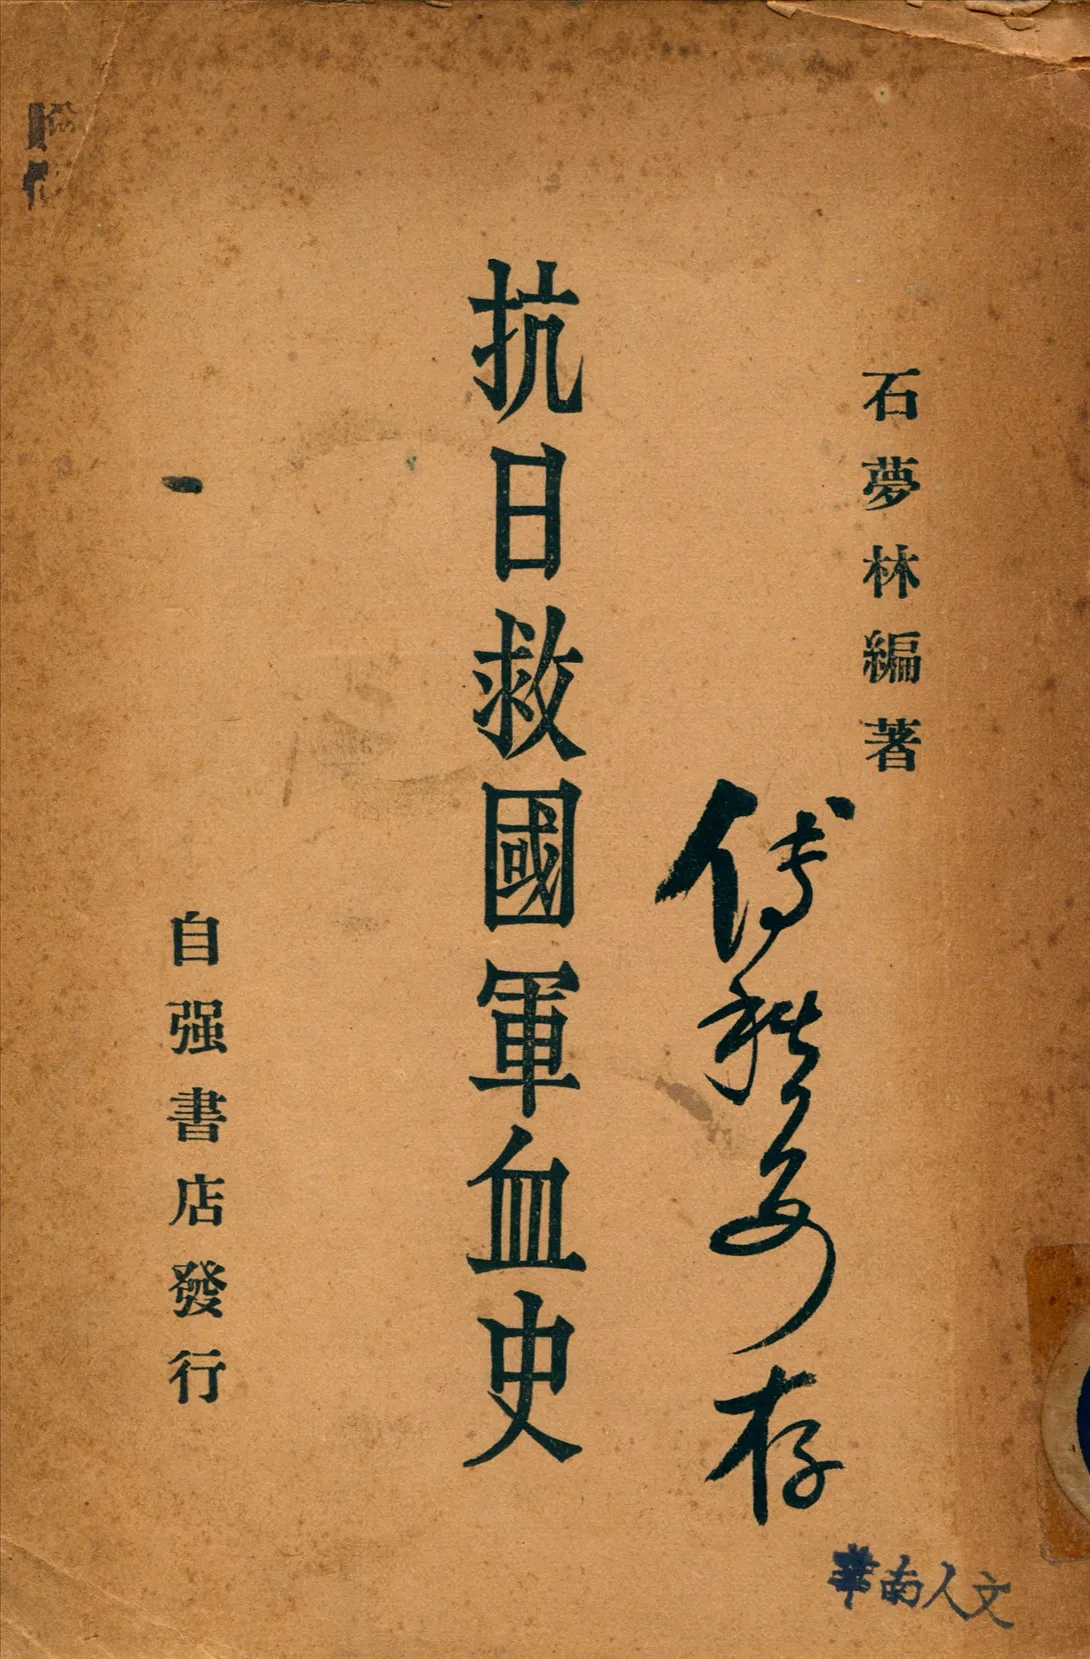 石夢林編著
抗日救國軍血史
自强書店發行
存
華南人文